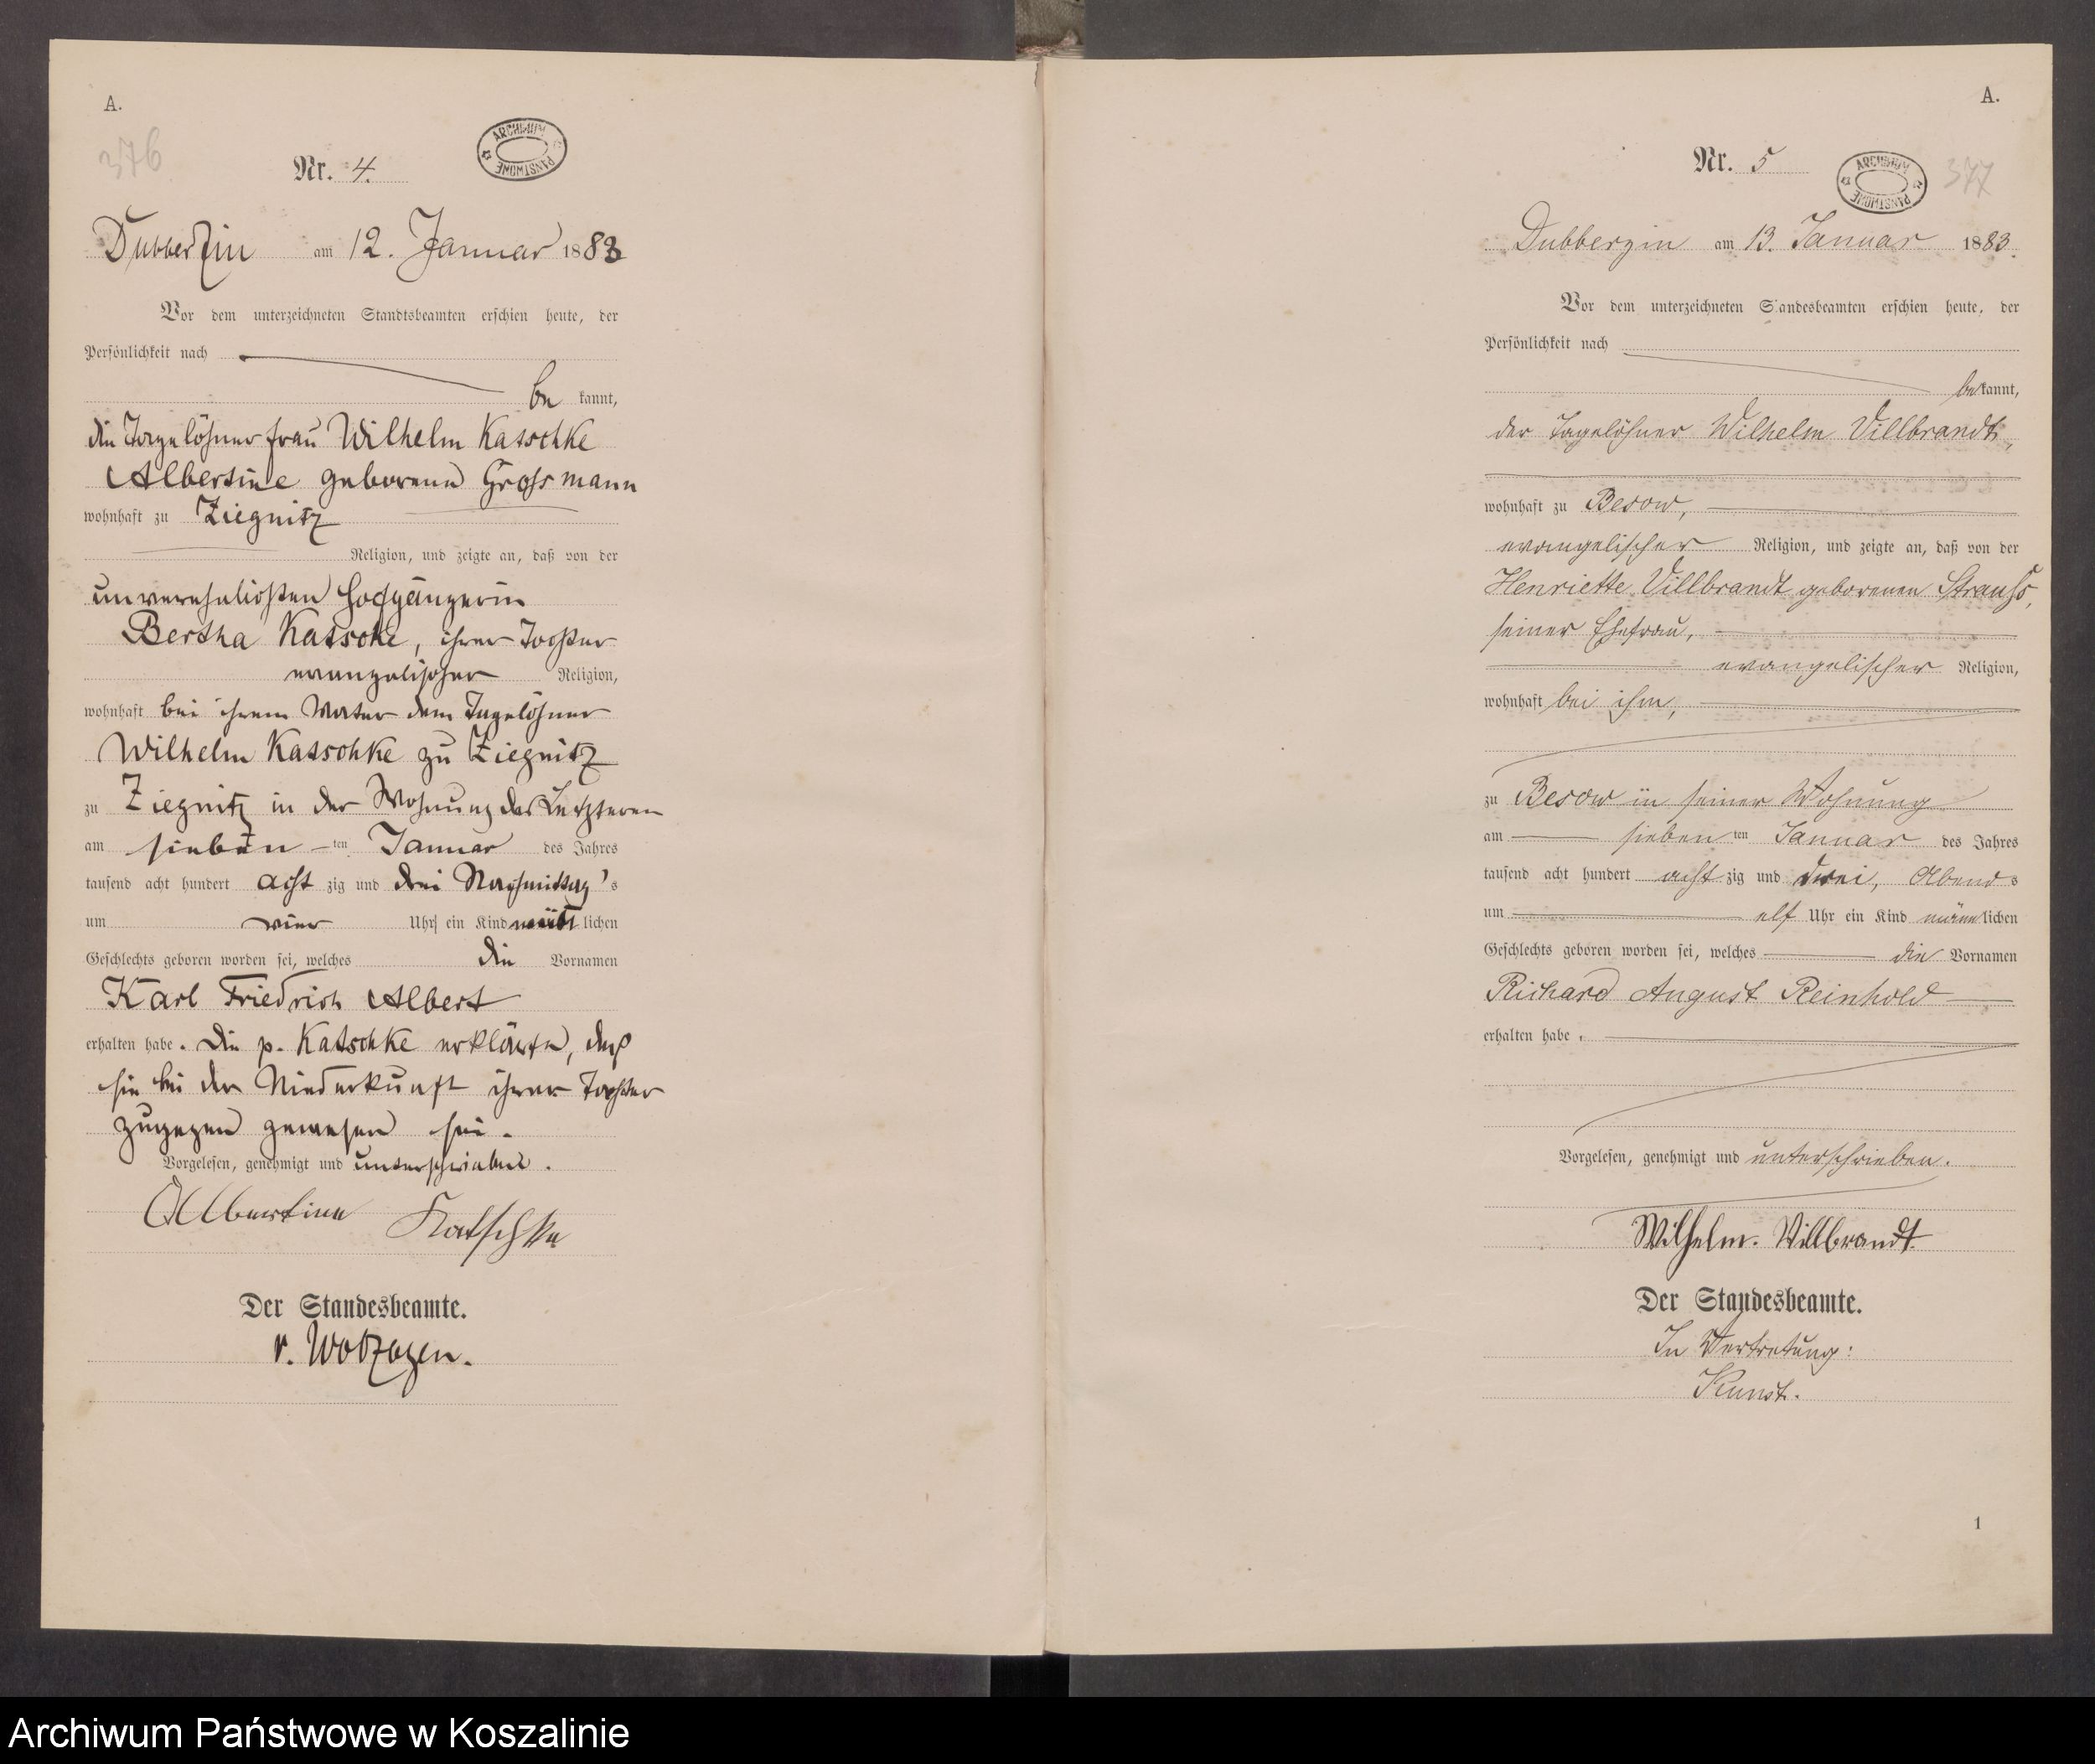 A.
376
Nr. 4.
ARCHIWUM PAŃSTWOWE
Dubberzin am 12. Januar 1883
Vor dem unterzeichneten Standtsbeamten erschien heute, der
Persönlichkeit nach
be kannt,
die Tagelöhnerfrau Wilhelm Katschke
Albertine geborene Grossmann
wohnhaft zu Ziegnitz
Religion, und zeigte an, daß von der
unverehelichten Hofgängerin
Bertha Katschke, ihrer Tochter
evangelischer Religion,
wohnhaft bei ihrem Vater dem Tagelöhner
Wilhelm Katschke zu Ziegnitz
zu Ziegnitz in der Wohnung des Letzteren
am sieben-ten Januar des Jahres
tausend acht hundert acht zig und drei Nachmittag's
um vier Uhr ein Kind lichen
Geschlechts geboren worden sei, welches die Vornamen
Karl Friedrich Albert
erhalten habe. Die p. Katschke erklärte, daß
sie bei der Niederkunft ihrer Tochter
zugegen gewesen sei.
Vorgelesen, genehmigt und unterschrieben.
Albertine Katschke
Der Standesbeamte.
v. Wolzogen.
A.
Nr. 5
ARCHIWUM PAŃSTWOWE
377
Dubberzin am 13. Januar 1883.
Vor dem unterzeichneten Standesbeamten erschien heute, der
Persönlichkeit nach
bekannt,
der Tagelöhner Wilhelm Villbrandt,
wohnhaft zu Besow,
evangelischer Religion, und zeigte an, daß von der
Henriette Villbrandt geborenen Strauss,
seiner Ehefrau,
evangelischer Religion,
wohnhaft bei ihm,
zu Besow in seiner Wohnung
am sieben ten Januar des Jahres
tausend acht hundert acht zig und drei, Abends
um elf Uhr ein Kind männlichen
Geschlechts geboren worden sei, welches die Vornamen
Richard August Reinhold
erhalten habe.
Vorgelesen, genehmigt und unterschrieben.
Wilhelm. Villbrandt.
Der Standesbeamte.
In Vertretung:
Kunst.
1
Archiwum Państwowe w Koszalinie